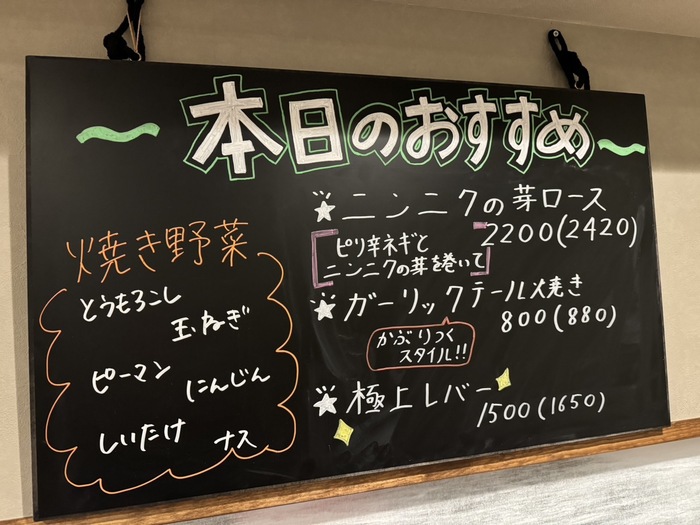 本日のおすすめ
焼き野菜
とうもろこし
玉ねぎ
ピーマン
にんじん
しいたけ
ナス
ニンニクの芽ロース
2200(2420)
ピリ辛ネギと
ニンニクの芽を巻いて
ガーリックテール焼き
800(880)
かぶりつく
スタイル!!
極上レバー
1500(1650)